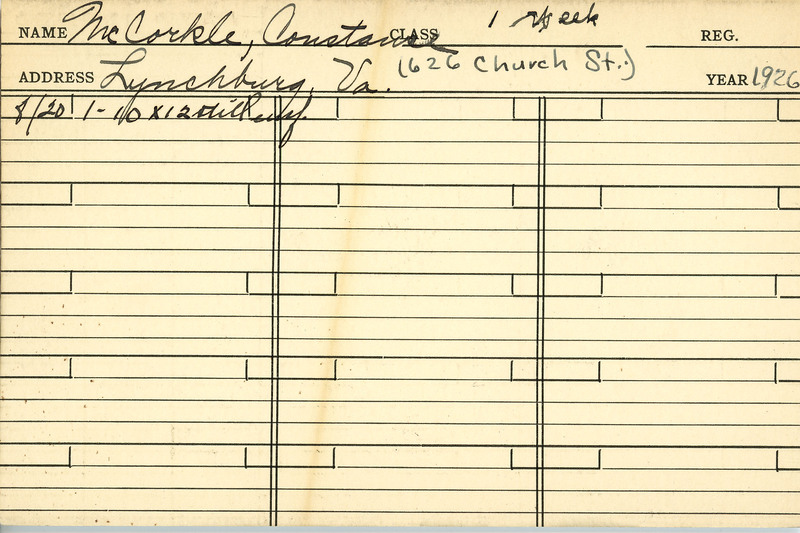 NAME McCorkle, Constance CLASS 1 Week REG.
ADDRESS Lynchburg, Va. (626 Church St.) YEAR 1926
8/20 1-10 x 12